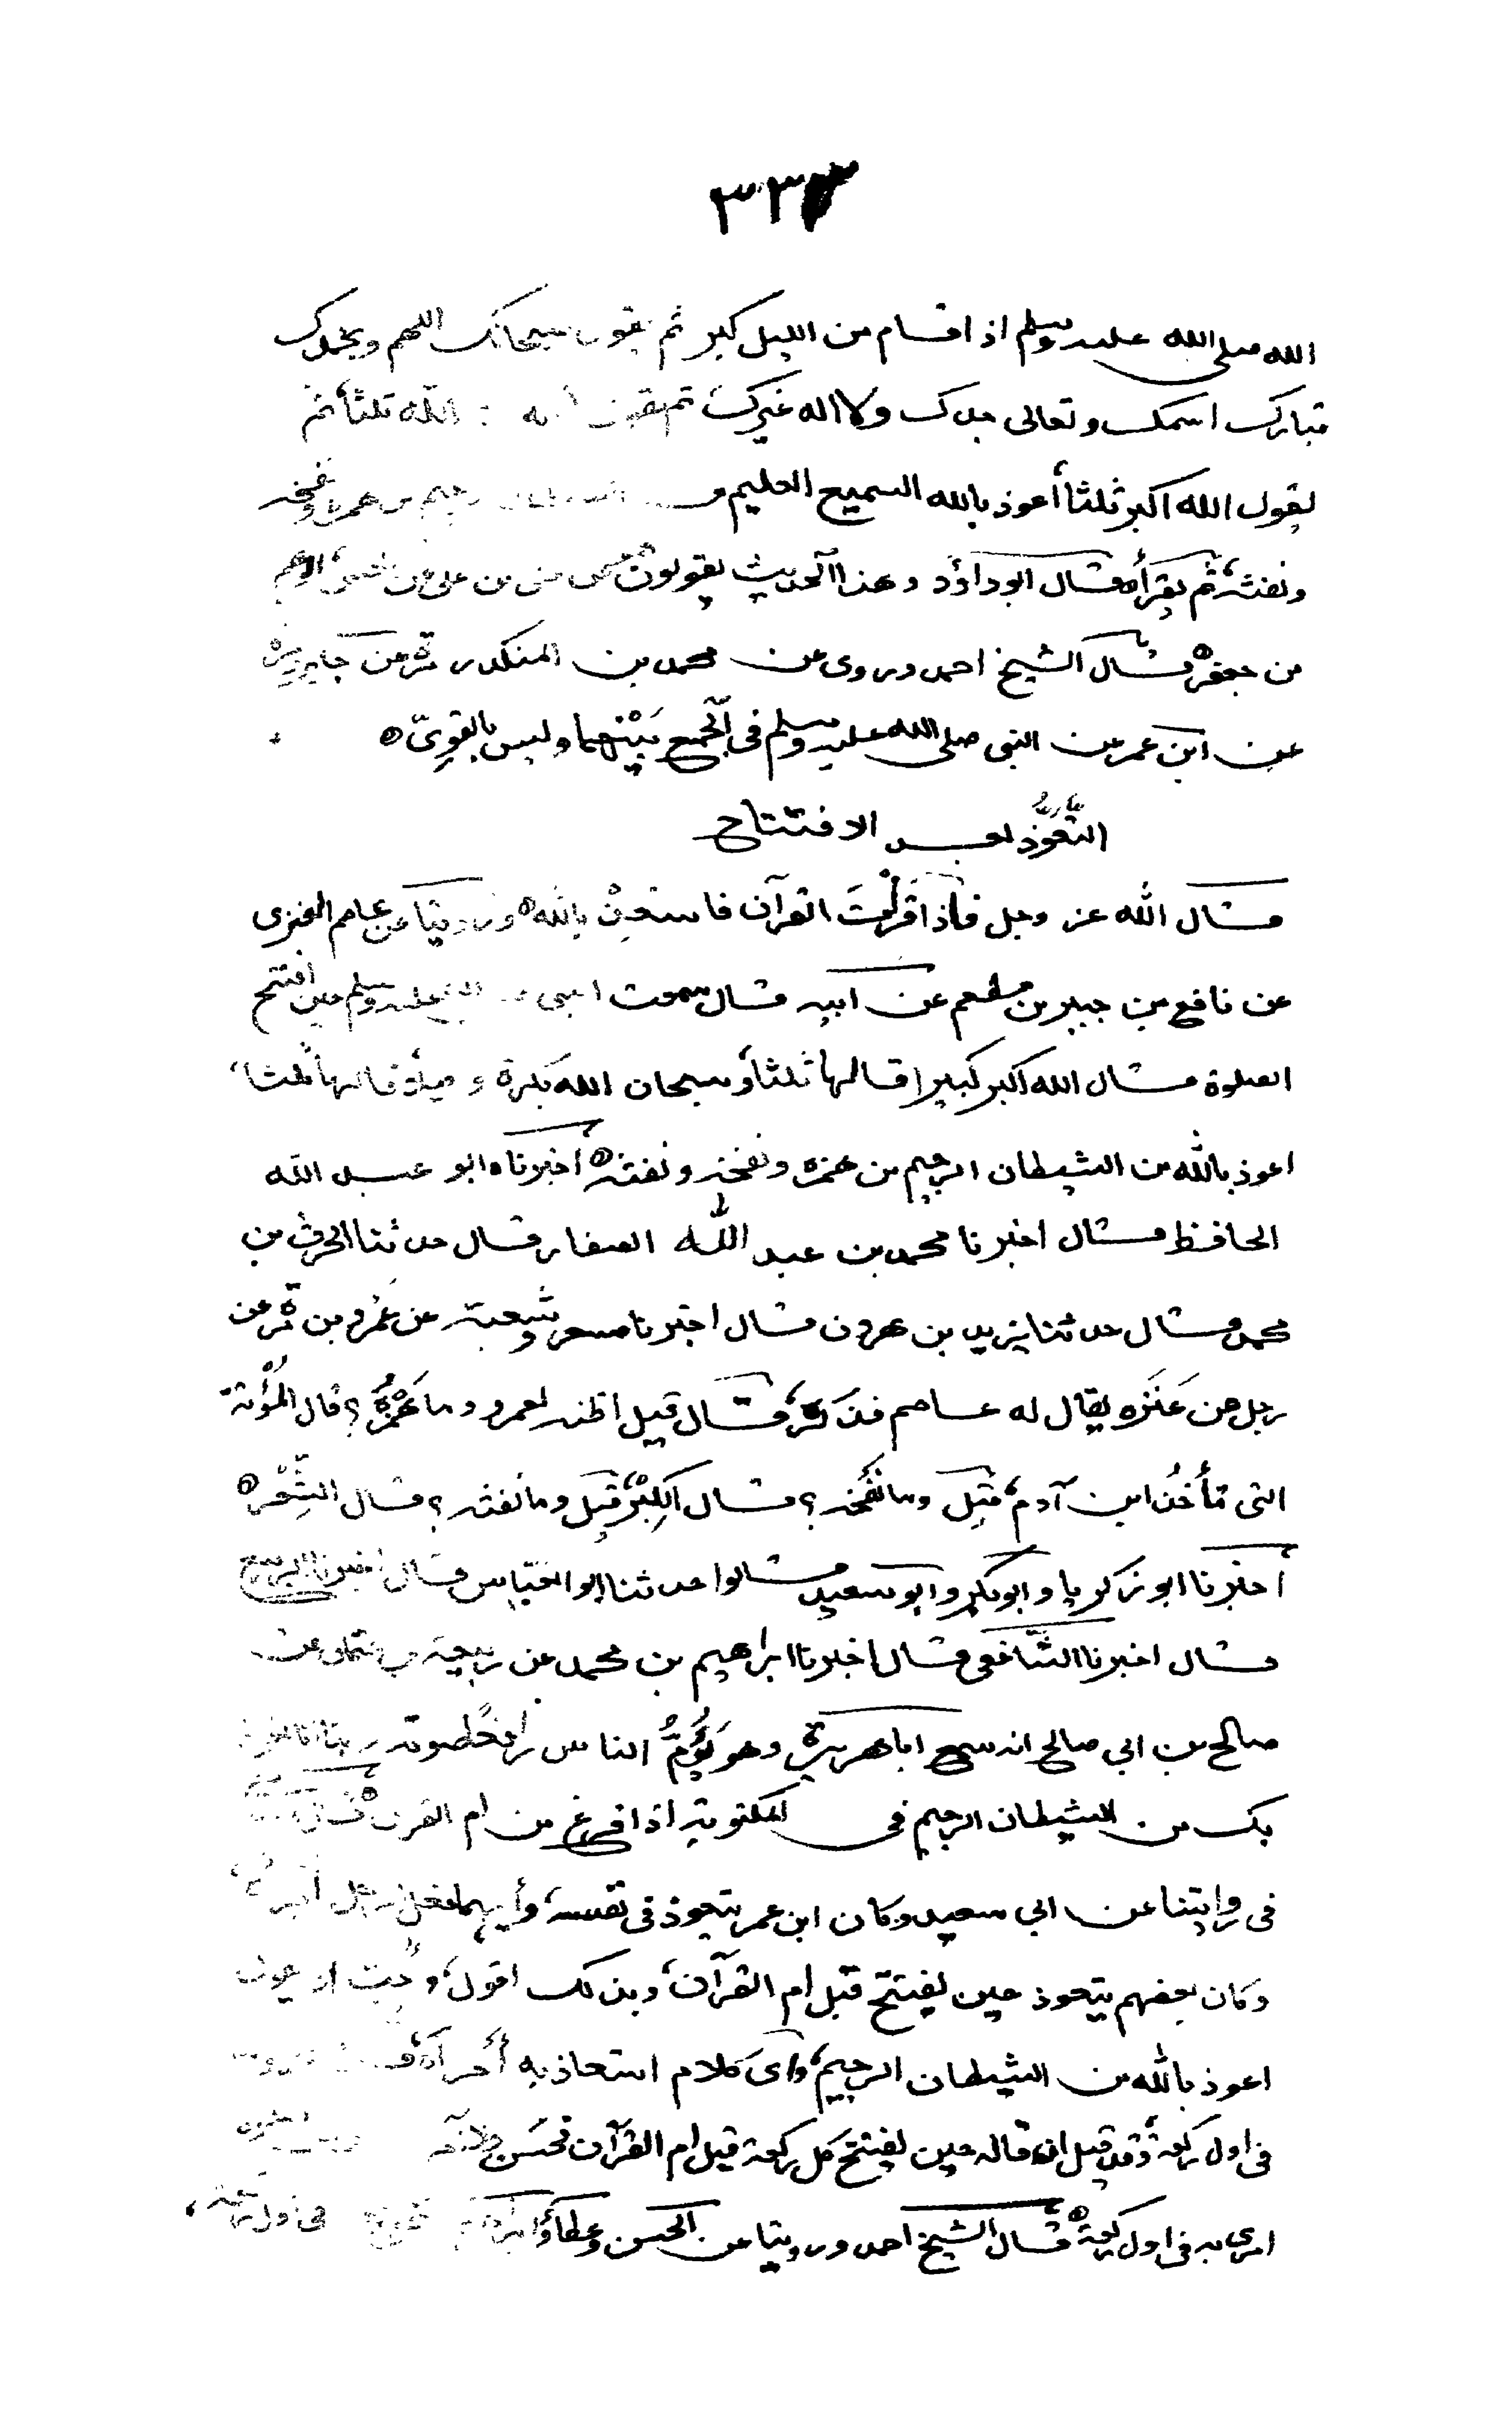 ٣٣٣
الله صلى الله عليه وسلم اذا قام من الليل كبر ثم يقول سبحانك اللهم وبحمدك
تبارك اسمك وتعالى جدك ولا اله غيرك ثم يقول الله ثلثا ثم
يقول الله اكبر ثلثا أعوذ بالله السميع العليم من همزه ونفخه
ونفثه ثم يقرأ قال ابو داؤد وهذا الحديث يقولون عن على بن على الوهم
من جعفر قال الشيخ احمد وروى عن محمد بن المنكدر مرة عن جابر ومرة
عن ابن عمر عن النبى صلى الله عليه وسلم فى الجمع بينهما وليس بالقوىّ
التعوّذ بعد الافتتاح
قال الله عز وجل فاذا قرأت القرآن فاستعذ بالله وروينا عن عاصم العنزى
عن نافع بن جبير بن مطعم عن ابيه قال سمعت النبى عليه وسلم حين افتتح
الصلوة قال الله اكبر كبيرا قالها ثلثا وسبحان الله بكرة و قالها ثلثا
اعوذ بالله من الشيطان الرجيم من همزه ونفخه ونفثه أخبرناه ابو عبد الله
الحافظ قال اخبرنا محمد بن عبد الله الصفار قال حدثنا الحرث بن
محمد قال حدثنا يزيد بن هرون قال اخبرنا مسعر وشعبة عن عمرو بن مرة عن
رجل من عَنَزه يقال له عاصم فذكره قال قيل اظنه لعمرو وما همزه؟ قال المُؤتة
التى تأخذ ابن آدم قيل وما نفخه؟ قال الكِبْر قيل وما نفثه؟ قال الشِّعْر
أخبرنا ابو زكريا وابو بكر وابو سعيد قالوا حدثنا ابو العباس قال اخبرنا الربيع
قال اخبرنا الشّافعى قال اخبرنا ابراهيم بن محمد عن ربيعة بن عثمان عن
صالح بن ابى صالح انه سمع ابا هريرة وهو يَؤُمُّ الناس رافعًا صوته ربنا انا نعوذ
بك من الشيطان الرجيم فى المكتوبة اذا فرغ من ام القرن قال
فى روايتنا عن ابى سعيد وكان ابن عمر يتعوذ فى نفسه وأيهما فعل الرجل أجزأه
وكان بعضهم يتعوذ حين يفتتح قبل ام القرآن وبذلك اقول وأحب ان يقول
اعوذ بالله من الشيطان الرجيم واى كلام استعاذ به أجزأه
فى اول ركعة وقد قيل ان قاله حين يفتتح كل ركعة قبل ام القرآن فحسن ولا
امرى به فى اول ركعة قال الشيخ احمد وروينا عن الحسن وعطاء وابراهيم فى اول ركعة